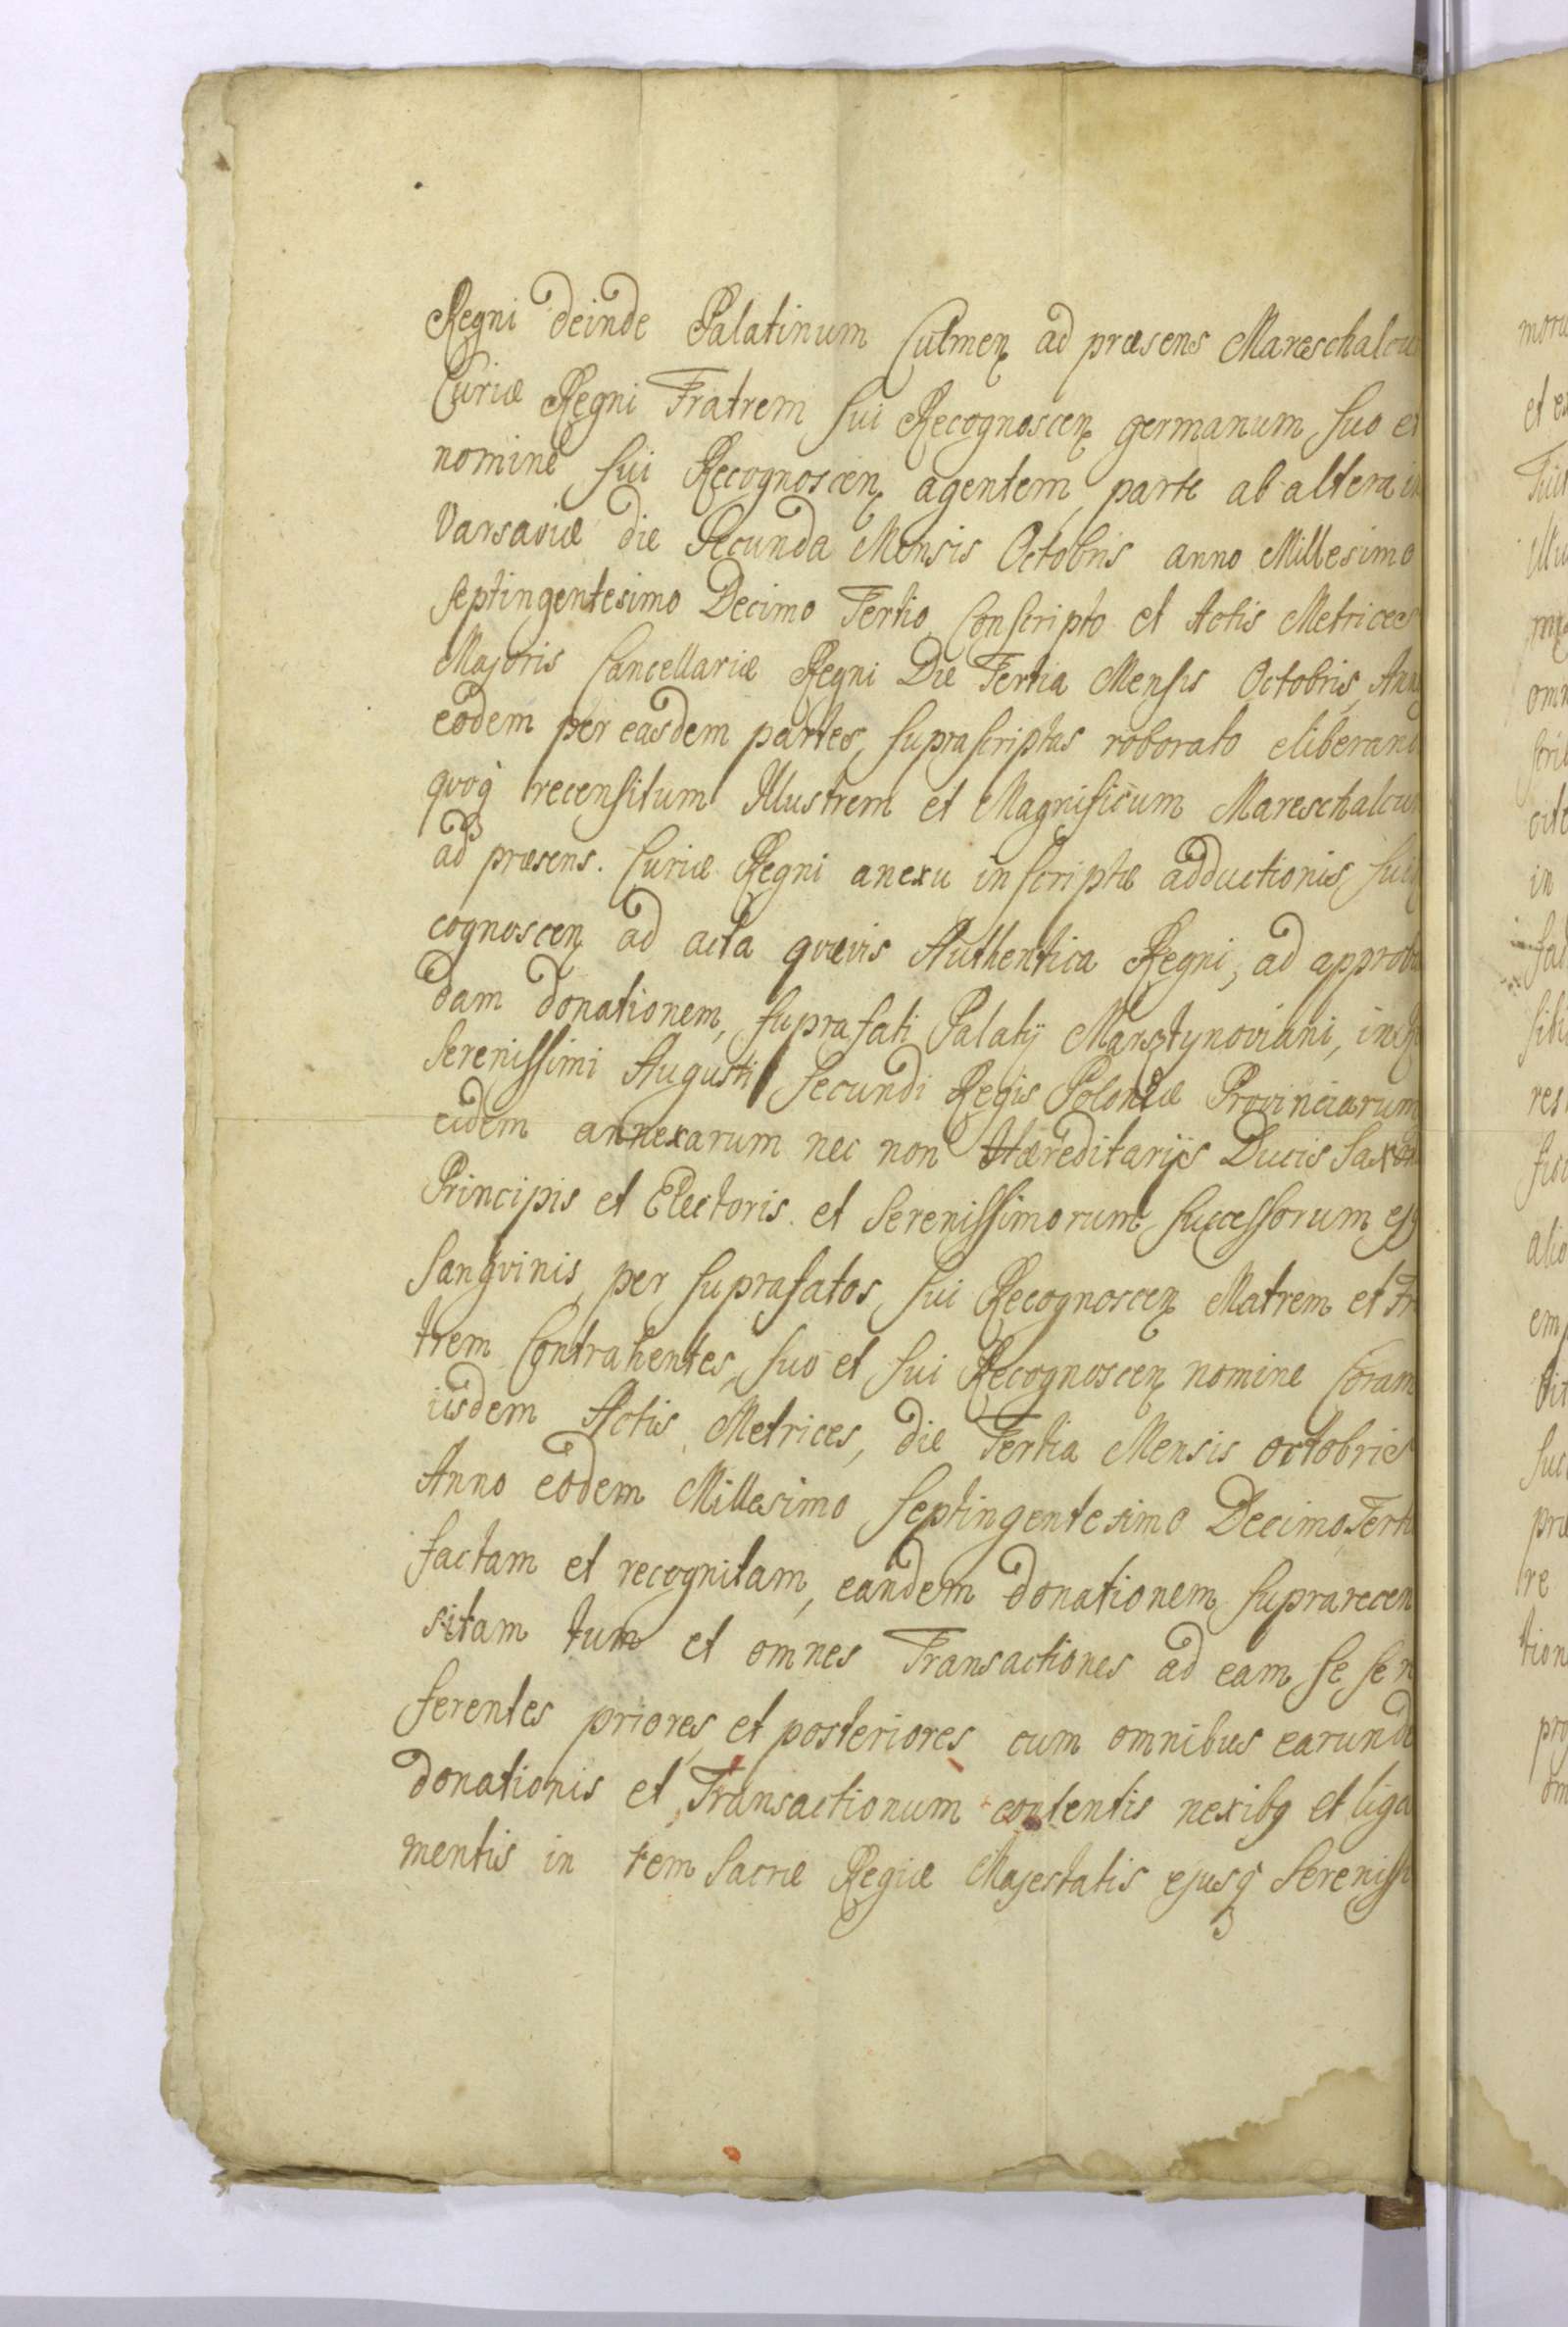 Regni deinde Palatinum Culmen ad præsens Mareschalcu
Curiæ Regni Fratrem sui Recognoscen germanum suo et
nomine sui Recognoscen agentem, parte ab altera in
Varsaviæ die Secunda Mensis Octobris anno Millesimo
septingentesimo Decimo Tertio Conscripto et Actis Metrices
Majoris Cancellariæ Regni Die Tertia Mensis Octobris, Anno
eodem per easdem partes, suprascriptas roborato eliberand
quoq recensitum Illustrem et Magnificum Mareschalcum
ad præsens. Curiæ Regni anexu inscriptæ adductionis sui
cognoscen ad acta quævis Authentica Regni, ad approba
dam donationem, suprafati Palatij Marsztynoviani, in
Serenissimi Augusti Secundi Regis Poloniæ Provinciarum
eidem annexarum nec non Hæreditarijs Ducis Saxon
Principis et Electoris. et Serenissimorum Successorum ej
Sangvinis, per suprafatos, sui Recognoscen Matrem et Fr
trem Contrahentes, suo et sui Recognoscen nomine Coram
iisdem Actis, Metrices, die Tertia Mensis octobris
Anno eodem Millesimo Septingentesimo Decimo Terti
factam et recognitam, eandem donationem suprarecen
sitam tum et omnes Transactiones ad eam se se r
ferentes priores et posteriores cum omnibus earunde
donationis et Transactionum contentis nexibq et liga
mentis in rem Sacræ Regiæ Majestatis ejusq Sereniss